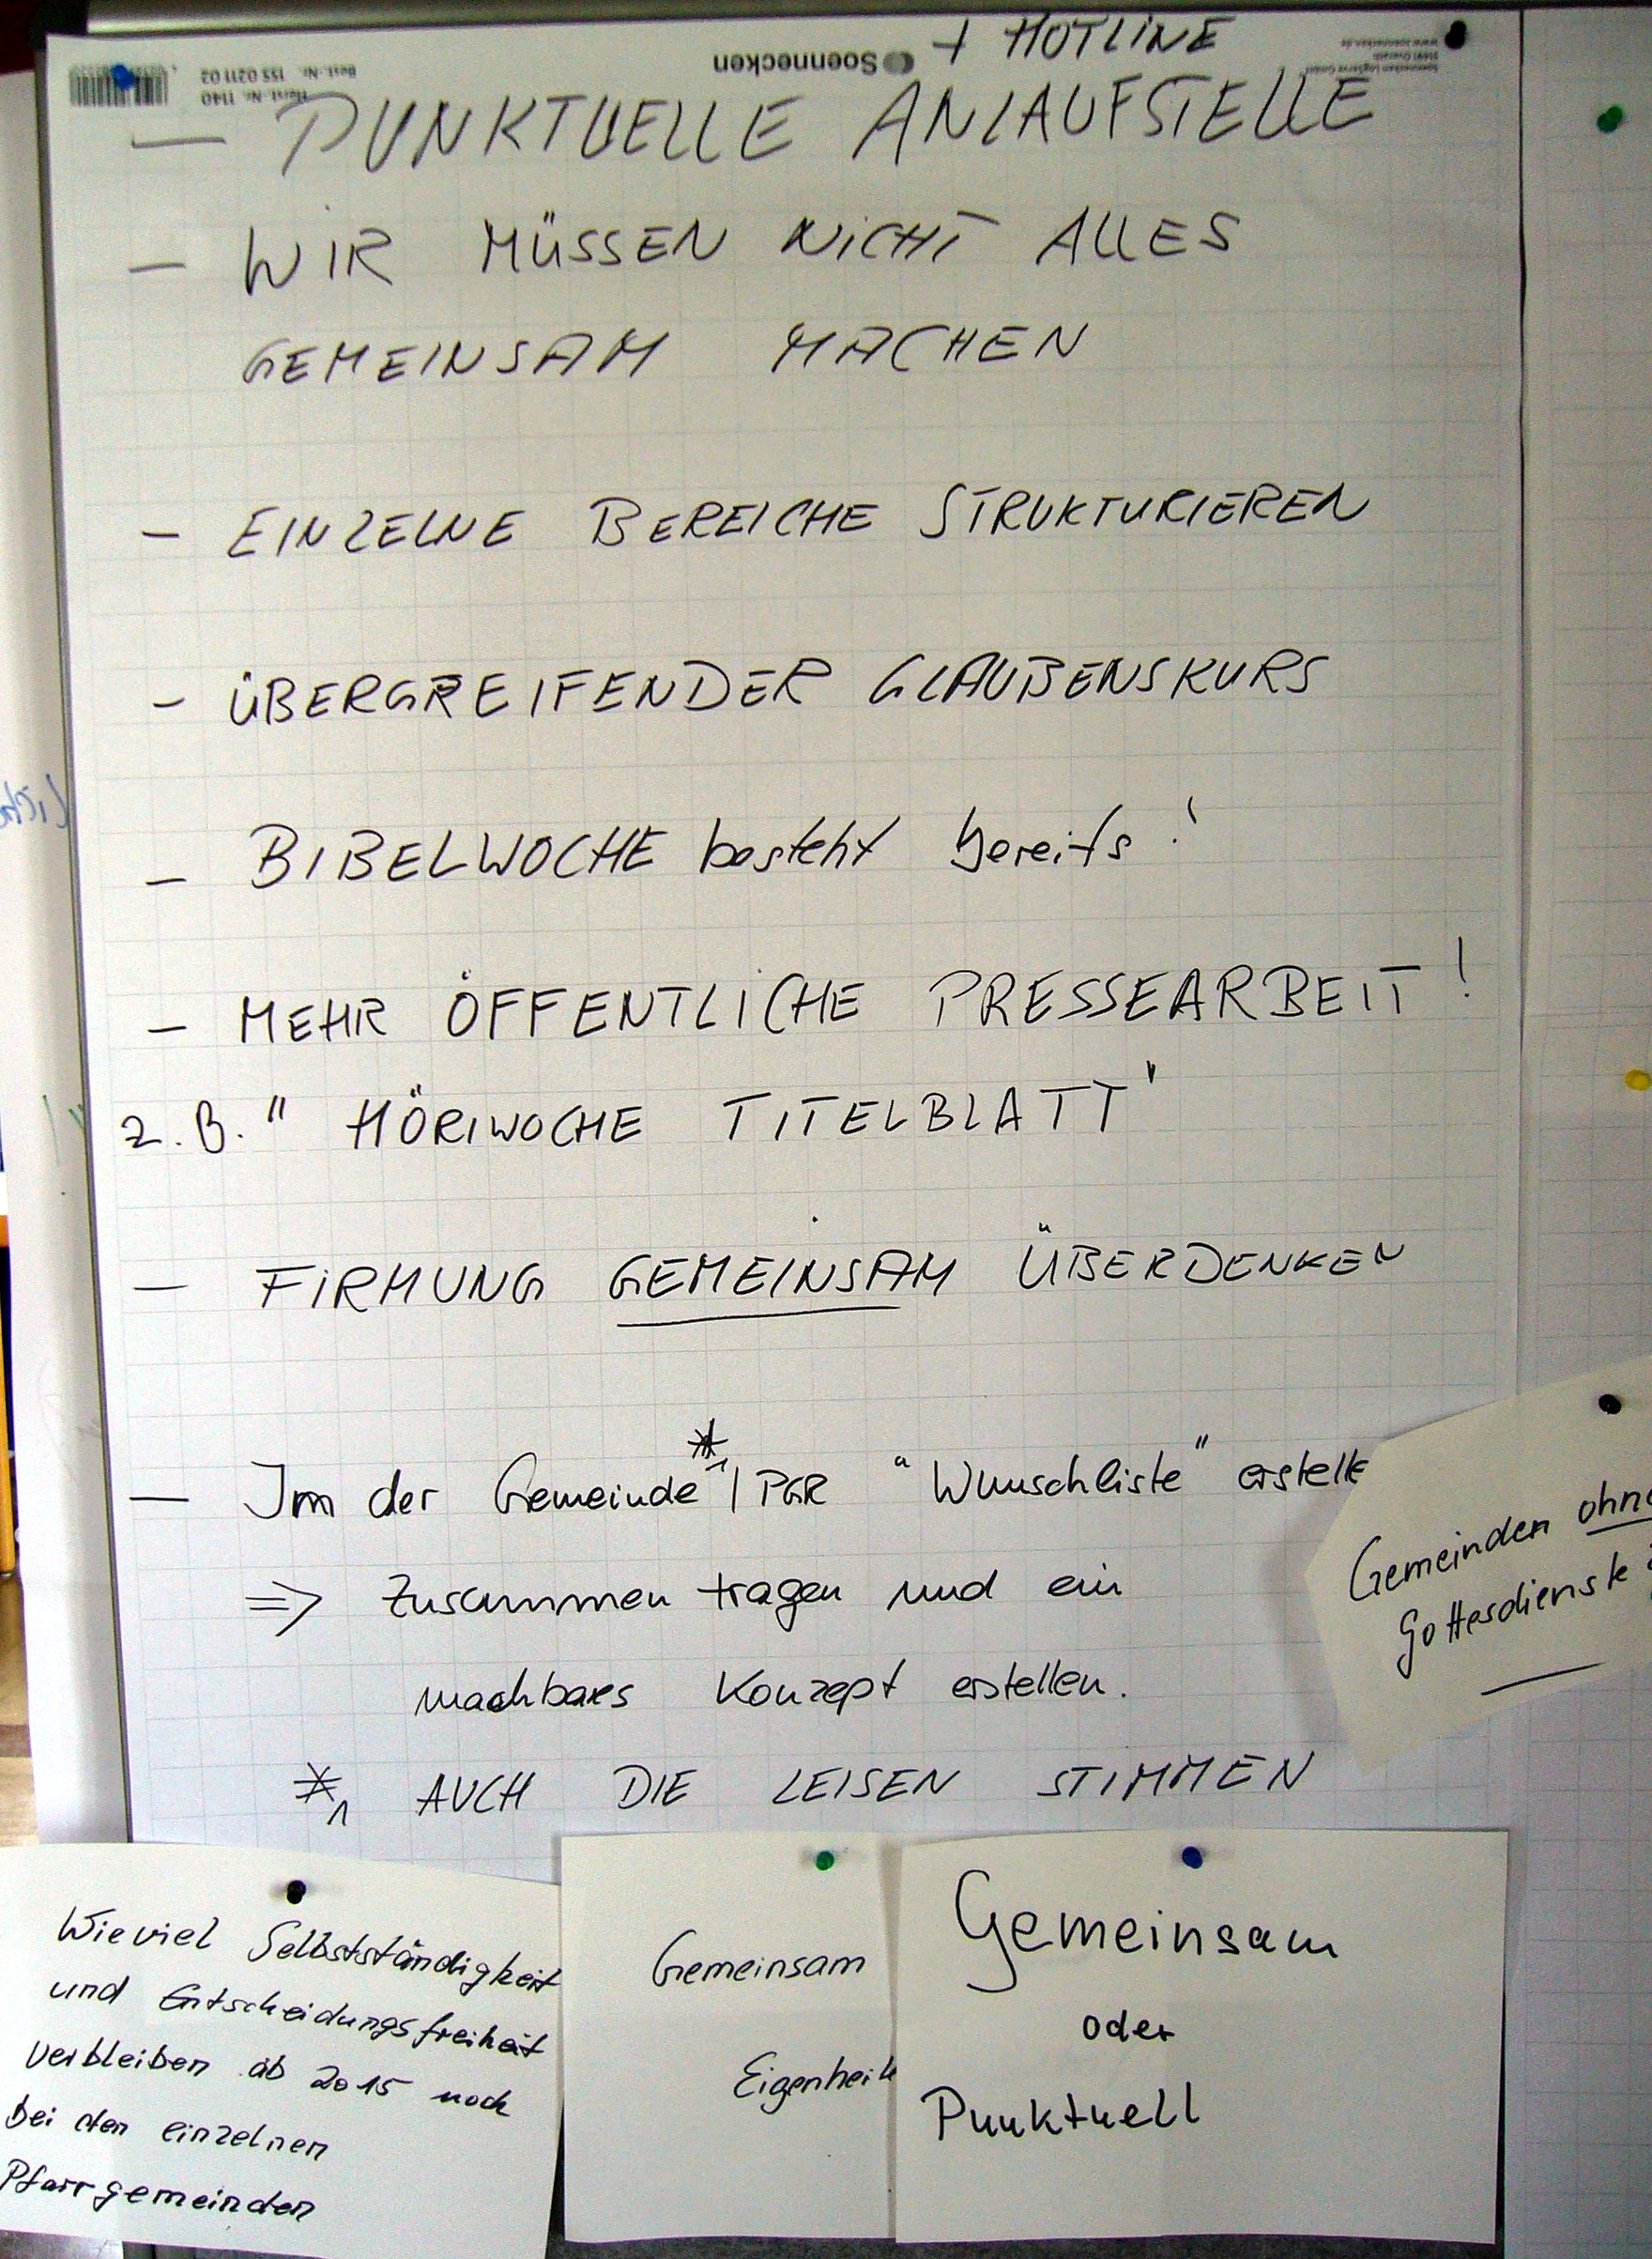 + HOTLINE
Soennecken
Best.-Nr. 155 0211 02
Herst.-Nr. 1140
— PUNKTUELLE ANLAUFSTELLE
— WIR MÜSSEN NICHT ALLES
GEMEINSAM MACHEN
— EINZELNE BEREICHE STRUKTURIEREN
— ÜBERGREIFENDER GLAUBENSKURS
— BIBELWOCHE besteht bereits!
— MEHR ÖFFENTLICHE PRESSEARBEIT!
z.B. " HÖRIWOCHE TITELBLATT"
— FIRMUNG GEMEINSAM ÜBERDENKEN
— Im der Gemeinde *1 / PGR "Wunschliste" erstelle
=> Zusammen tragen und ein
machbares Konzept erstellen.
*1 AUCH DIE LEISEN STIMMEN
Gemeinden ohne
Gottesdienste
Wieviel Selbstständigkeit
und Entscheidungsfreiheit
verbleiben ab 2015 noch
bei den einzelnen
Pfarrgemeinden
Gemeinsam
Eigenheit
Gemeinsam
oder
Punktuell